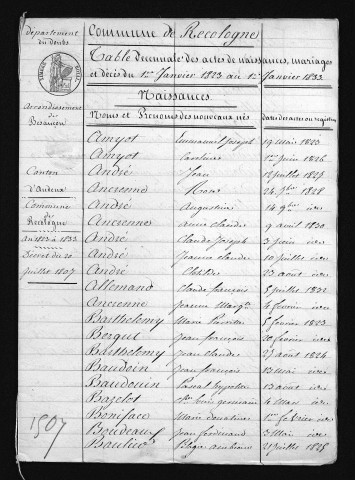 Département
du Doubs
Arrondissement
de
Besançon
Canton
d'Audeux
Commune
de
Recologne
An 1823 à 1833
Décret du 20
juillet 1807
1507
Commune de Recologne
Table Décennale des actes de naissances, mariages
et décès du 1er Janvier 1823 au 1er Janvier 1833
Naissances
Noms et Prénoms des nouveaux nés dates des actes au registre
Amyot Emmanuel Joseph 19 mai 1823
Amyot 1er juin 1826
André Jean 12 juillet 1825
Ancrenne 24 9bre 1828
André Augustin 14 9bre idem
Ancrenne anne claude 9 avril 1830
André Claude Joseph 3 juin idem
André Jeanne claude 10 juillet idem
André 23 aout idem
Allemand claude françois 5 juillet 1832
Ancrenne jeanne Margte 4 février idem
Barthelemy Marie 5 février 1823
Berguet jean françois 20 février idem
Barthelemy jean claude 27 aout 1824
Baudoin jean françois 13 mai idem
Baudouin Pascal hypolite 13 aout idem
Bazelot louis germain 4 Mars idem
Boniface Marie donatine 1er février idem
Boudeaux jean ferdinand 3 Mai idem
21 juillet 1825